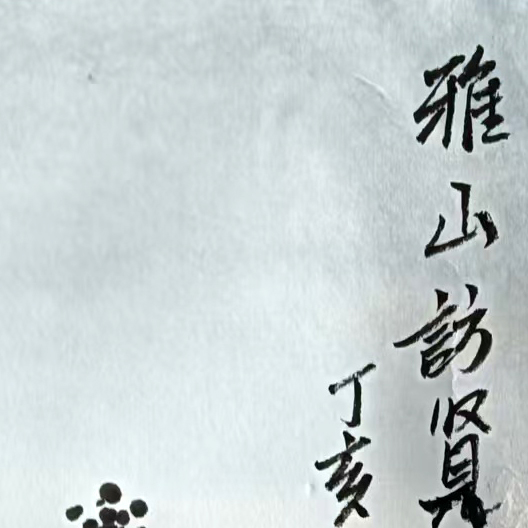 雅山訪賢
丁亥